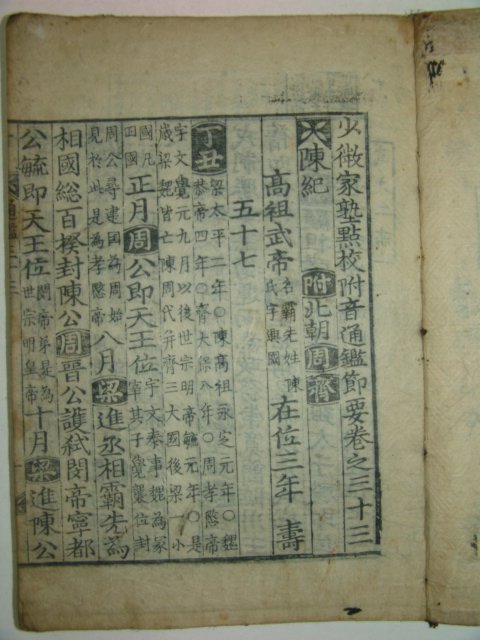 少微家塾點校附音通鑑節要卷之三十三
陳紀 附 北朝 周 齊
高祖武帝 名霸先姓陳氏字興國 在位三年 壽
五十七
丁丑 梁太平二年○陳高祖永定元年○魏
恭帝四年○齊天保八年○周孝愍帝
宇文覺元九月以後世宗明帝毓元年○是
歲梁魏皆亡陳周代幷齊三大國後梁小
國凡四國 正月 周 公即天王位 宇文泰事魏為冢
宰其子覺襲位封
周公尋建國為周始
見於此是為孝愍帝 八月 梁 進丞相霸先為
相國總百揆封陳公 周 晉公護弑閔帝寧都
公毓即天王位 閔帝弟是為
世宗明皇帝 十月 梁 進陳公